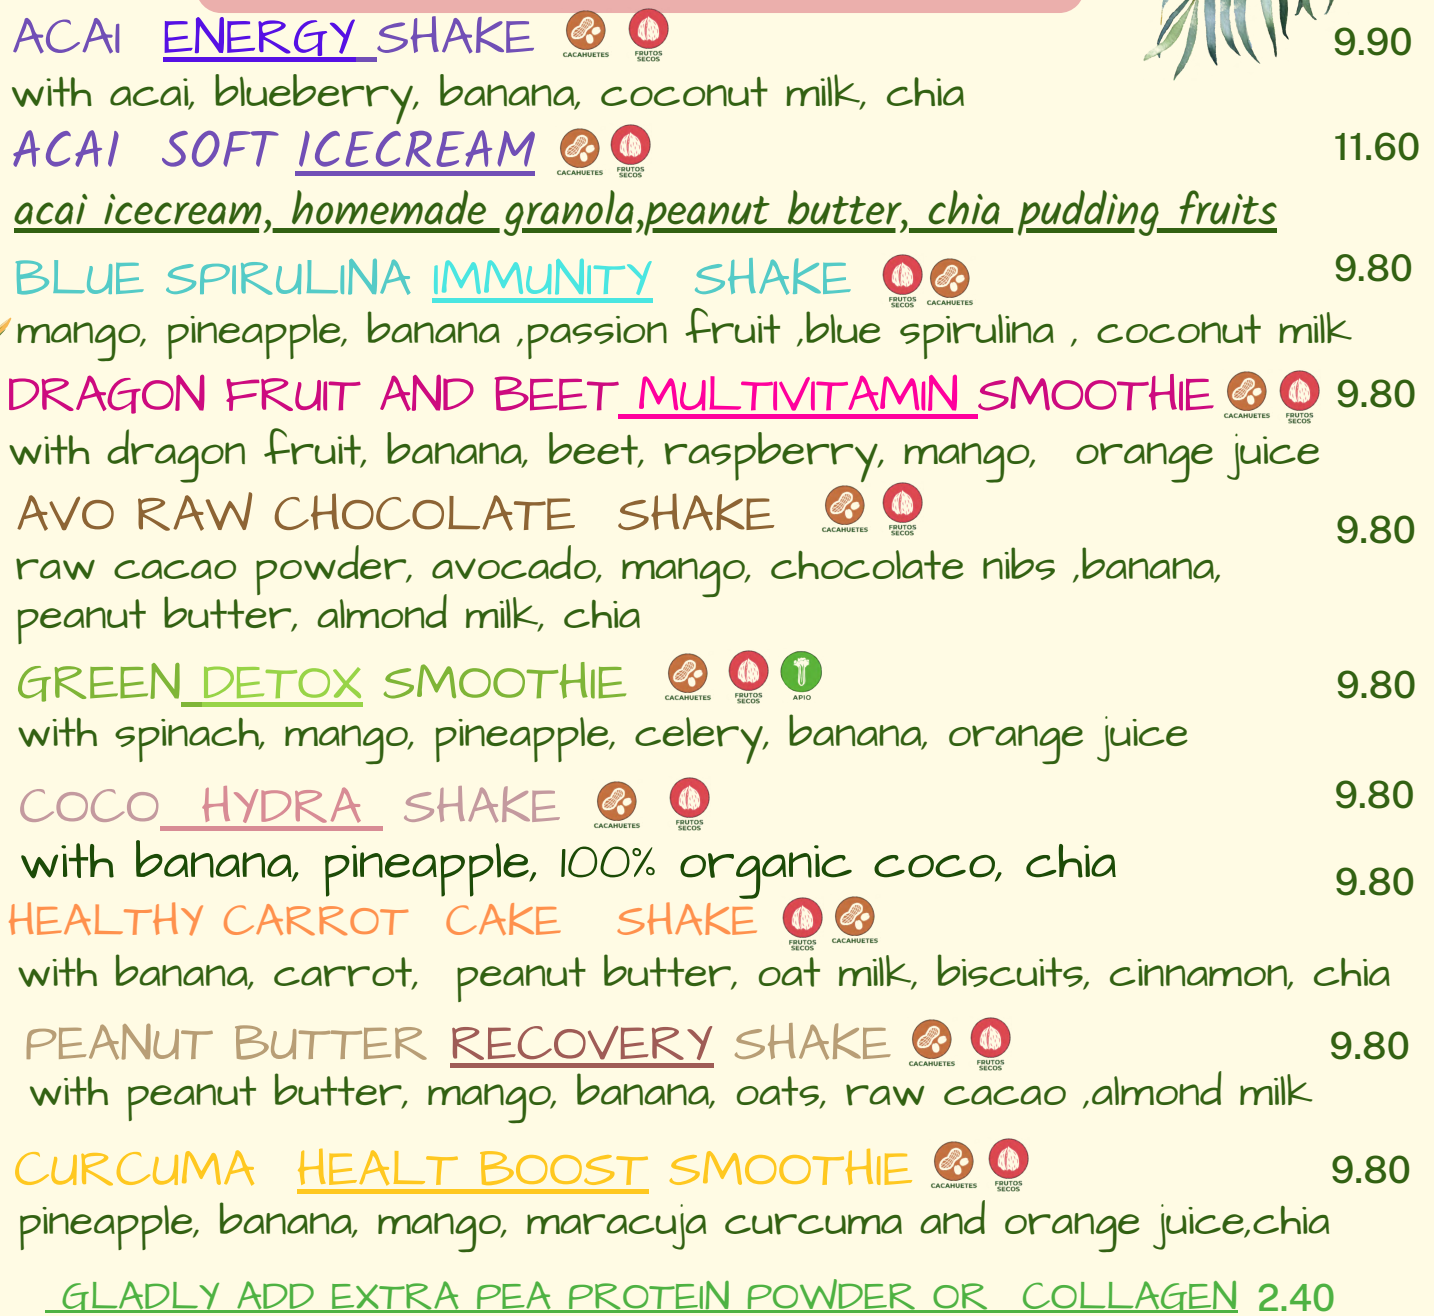 ACAI ENERGY SHAKE CACAHUETES FRUTOS SECOS 9.90
with acai, blueberry, banana, coconut milk, chia
ACAI SOFT ICECREAM CACAHUETES FRUTOS SECOS 11.60
acai icecream, homemade granola,peanut butter, chia pudding fruits
BLUE SPIRULINA IMMUNITY SHAKE FRUTOS SECOS CACAHUETES 9.80
mango, pineapple, banana ,passion fruit ,blue spirulina , coconut milk
DRAGON FRUIT AND BEET MULTIVITAMIN SMOOTHIE CACAHUETES FRUTOS SECOS 9.80
with dragon fruit, banana, beet, raspberry, mango, orange juice
AVO RAW CHOCOLATE SHAKE CACAHUETES FRUTOS SECOS 9.80
raw cacao powder, avocado, mango, chocolate nibs ,banana,
peanut butter, almond milk, chia
GREEN DETOX SMOOTHIE CACAHUETES FRUTOS SECOS APIO 9.80
with spinach, mango, pineapple, celery, banana, orange juice
COCO HYDRA SHAKE CACAHUETES FRUTOS SECOS 9.80
with banana, pineapple, 100% organic coco, chia
HEALTHY CARROT CAKE SHAKE FRUTOS SECOS CACAHUETES 9.80
with banana, carrot, peanut butter, oat milk, biscuits, cinnamon, chia
PEANUT BUTTER RECOVERY SHAKE CACAHUETES FRUTOS SECOS 9.80
with peanut butter, mango, banana, oats, raw cacao ,almond milk
CURCUMA HEALT BOOST SMOOTHIE CACAHUETES FRUTOS SECOS 9.80
pineapple, banana, mango, maracuja curcuma and orange juice,chia
GLADLY ADD EXTRA PEA PROTEIN POWDER OR COLLAGEN 2.40